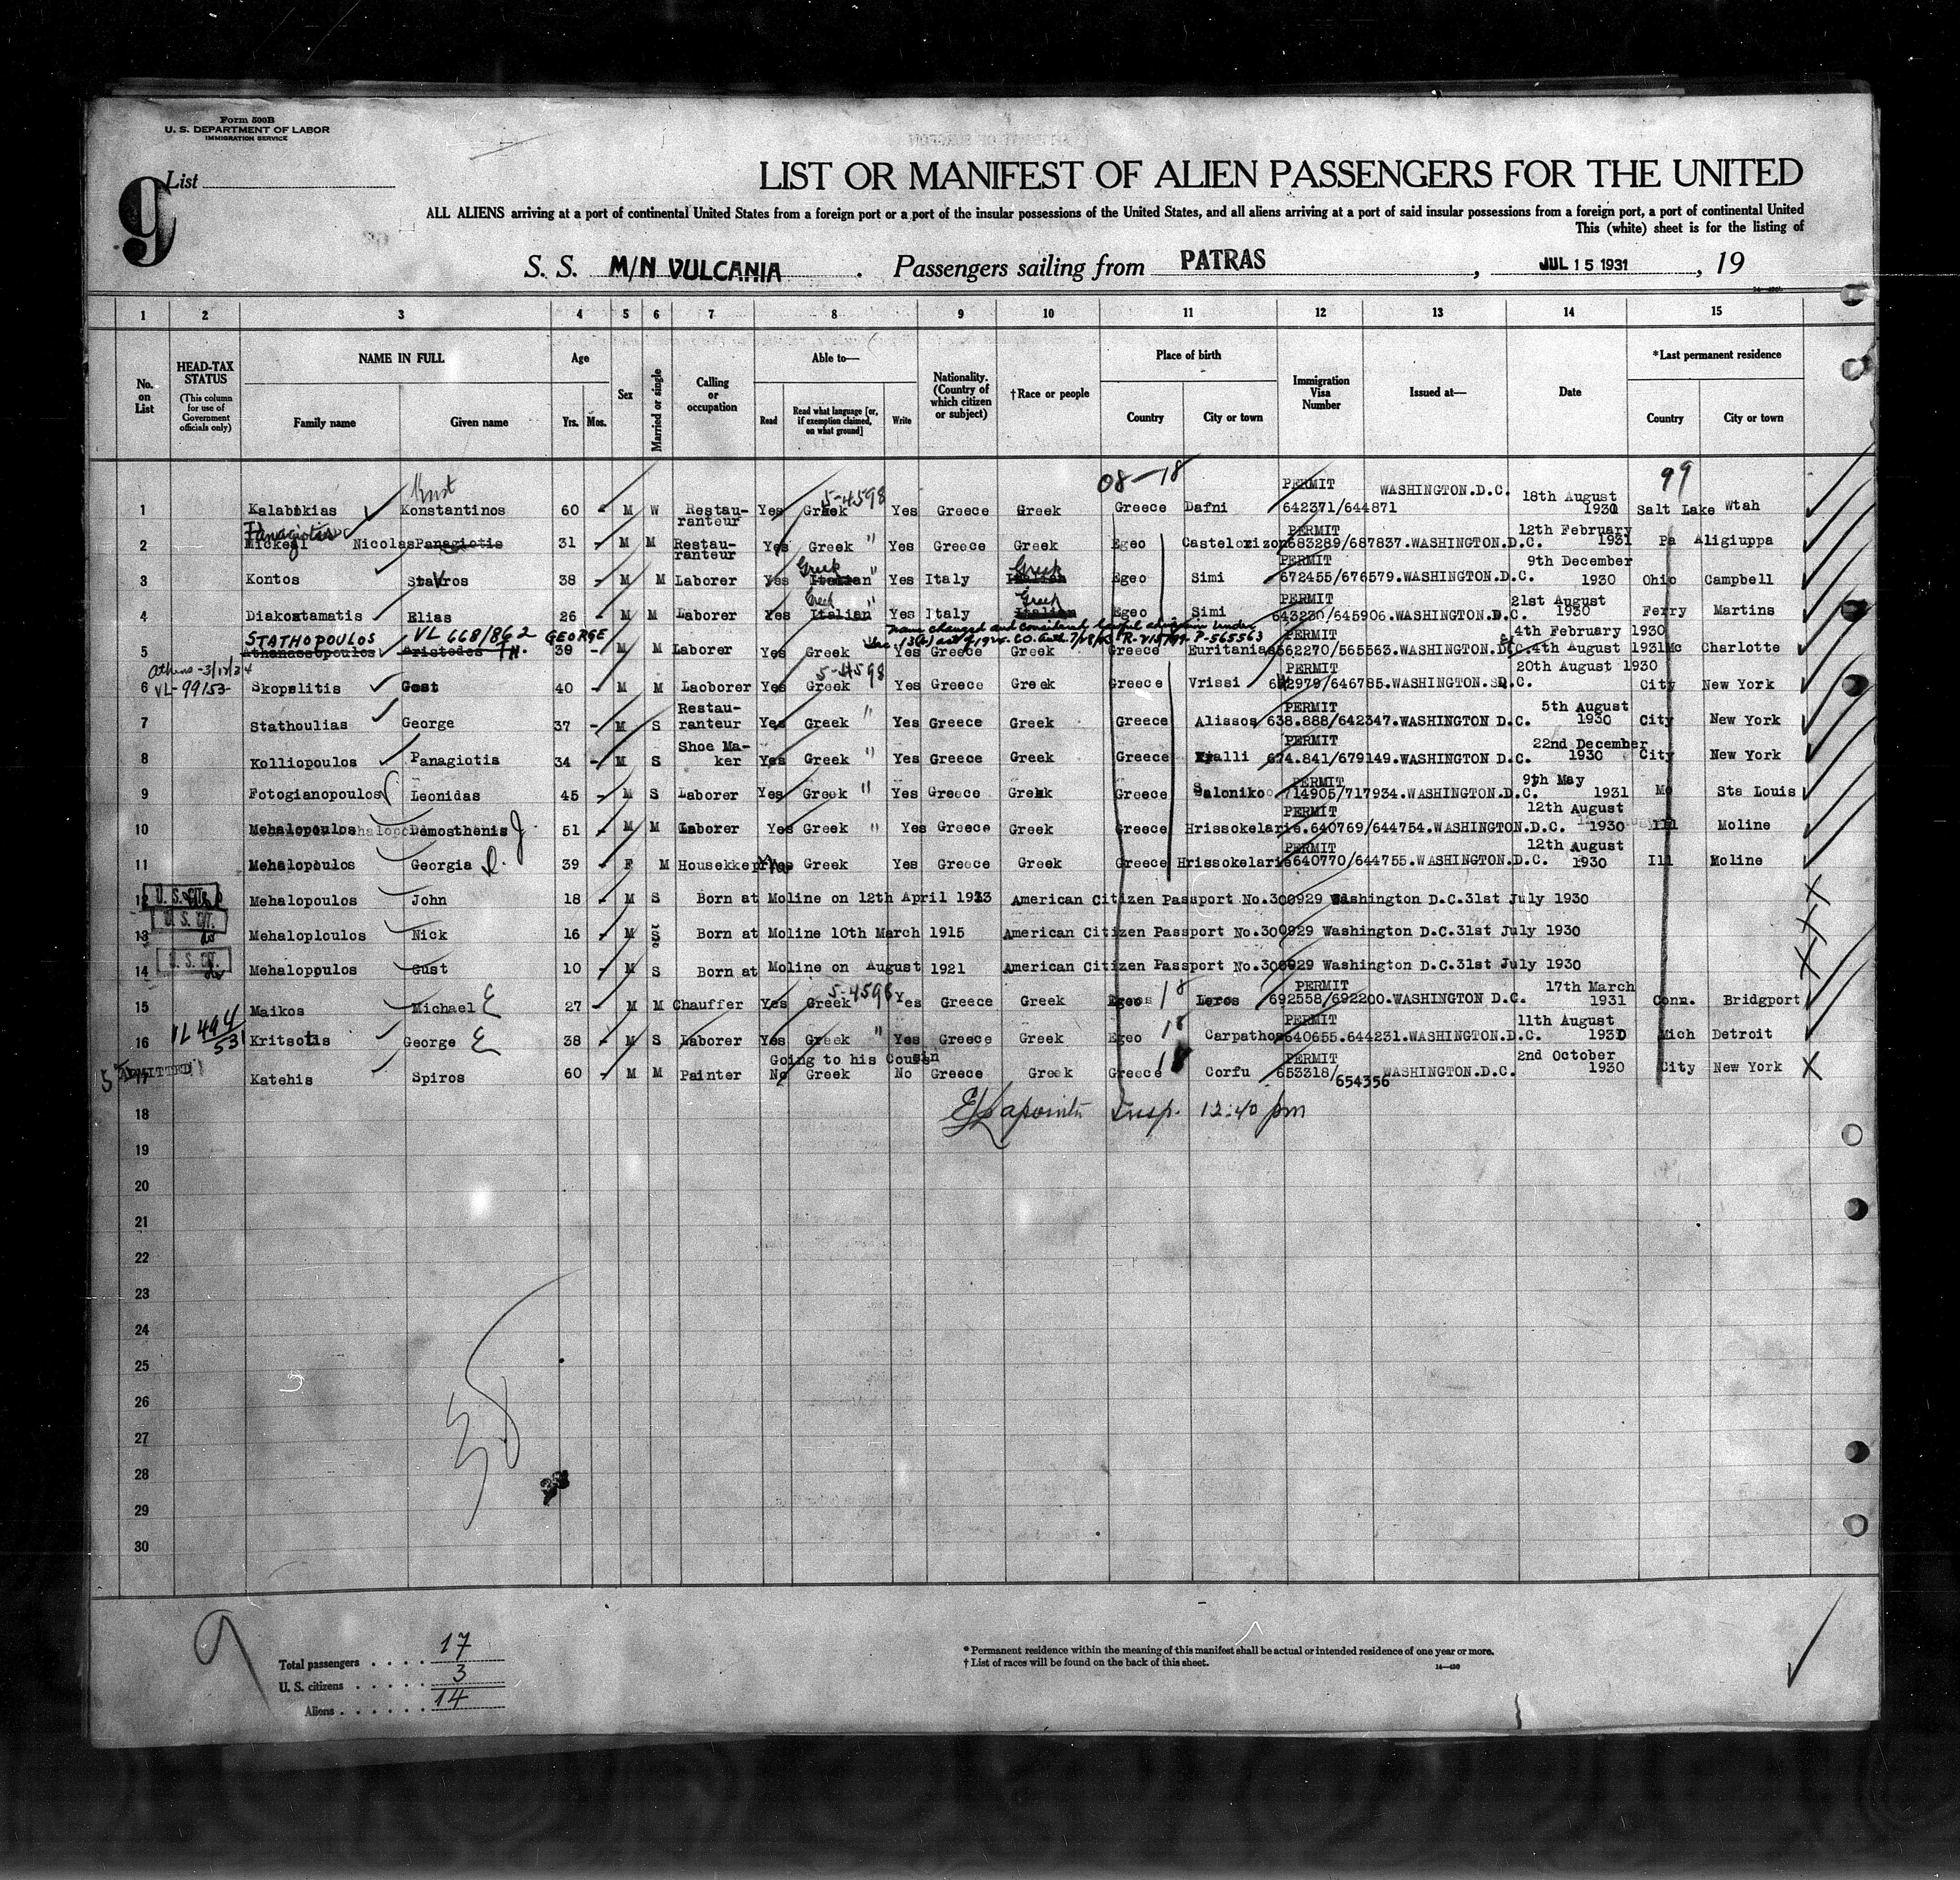 Form 500B
U. S. DEPARTMENT OF LABOR
IMMIGRATION SERVICE
9
List
LIST OR MANIFEST OF ALIEN PASSENGERS FOR THE UNITED
ALL ALIENS arriving at a port of continental United States from a foreign port or a port of the insular possessions of the United States, and all aliens arriving at a port of said insular possessions from a foreign port, a port of continental United
This (white) sheet is for the listing of
S. S. M/N VULCANIA . Passengers sailing from PATRAS , JUL 15 1931 , 19
1 2 3 4 5 6 7 8 9 10 11 12 13 14 15
No. on List
HEAD-TAX STATUS (This column for use of Government officials only)
NAME IN FULL Family name Given name
Age Yrs. Mos.
Sex
Married or single
Calling or occupation
Able to— Read Read what language [or, if exemption claimed, on what ground] Write
Nationality. (Country of which citizen or subject)
†Race or people
Place of birth Country City or town
Immigration Visa Number
Issued at—
Date
*Last permanent residence Country City or town
08-18 99
1 Kalabokias Konstantinos 60 - M W Restauranteur Yes Greek 5-4598 Yes Greece Greek Greece Dafni PERMIT 642371/644871 WASHINGTON.D.C. 18th August 1930 Salt Lake Wtah
2 Panagiotis Mickegl Nicolas Panagiotis 31 - M M Restauranteur Yes Greek " Yes Greece Greek Egeo Castelorizon PERMIT 683289/687837.WASHINGTON.D.C. 12th February 1931 Pa Aligiuppa
3 Kontos Stavros 38 - M M Laborer Yes Greek Italian " Yes Italy Greek Italian Egeo Simi PERMIT 672455/676579.WASHINGTON.D.C. 9th December 1930 Ohio Campbell
4 Diakostamatis Elias 26 - M M Laborer Yes Greek Italian " Yes Italy Greek Italian Egeo Simi PERMIT 643230/645906.WASHINGTON.D.C. 21st August 1930 Ferry Martins
STATHOPOULOS VL 668/862 GEORGE TH.
name changed and considered lawful admission under
5 Athanassopoulos Aristedes 39 - M M Laborer Yes Greek Yes Greece Greek Greece Euritanias PERMIT 562270/565563.WASHINGTON.D.C. 4th February 1930 4th August 1931 Mc Charlotte
Athens-3/12/34
VL-99153
6 Skopelitis Gost 40 - M M Laoborer Yes Greek 5-4598 Yes Greece Greek Greece Vrissi PERMIT 642979/646785.WASHINGTON.D.C. 20th August 1930 City New York
7 Stathoulias George 37 - M S Restauranteur Yes Greek " Yes Greece Greek Greece Alissos PERMIT 638.888/642347.WASHINGTON D.C. 5th August 1930 City New York
8 Kolliopoulos Panagiotis 34 - M S Shoe Maker Yes Greek " Yes Greece Greek Greece PERMIT 674.841/679149.WASHINGTON D.C. 22nd December 1930 City New York
9 Fotogianopoulos Leonidas 45 - M S Laborer Yes Greek " Yes Greece Greek Greece Saloniko PERMIT 714905/717934.WASHINGTON.D.C. 9th May 1931 Mo Sts Louis
10 Mehalopoulos Demosthenis J 51 - M M Laborer Yes Greek " Yes Greece Greek Greece Hrissokelarie.640769/644754.WASHINGTON.D.C. 12th August 1930 Ill Moline
11 Mehalopoulos Georgia D. 39 - F M Housekkeper Yes Greek Yes Greece Greek Greece Hrissokelarie 640770/644755.WASHINGTON.D.C. 12th August 1930 Ill Moline
U. S. CIT.
12 Mehalopoulos John 18 - M S Born at Moline on 12th April 1913 American Citizen Passport No.300929 Washington D.C.31st July 1930
U. S. CIT.
13 Mehaloploulos Nick 16 - M Born at Moline 10th March 1915 American Citizen Passport No.300929 Washington D.C.31st July 1930
U. S. CIT.
14 Mehalopoulos Gust 10 - M S Born at Moline on August 1921 American Citizen Passport No.300929 Washington D.C.31st July 1930
15 Maikos Michael E 27 - M M Chauffer Yes Greek 5-4598 Yes Greece Greek Egeos 18 Leros PERMIT 692558/692200.WASHINGTON D.C. 17th March 1931 Conn. Bridgport
VL 494/531
16 Kritsotis George E 38 - M S Laborer Yes Greek " Yes Greece Greek Egeo 18 Carpathos PERMIT 640655.644231.WASHINGTON.D.C. 11th August 1930 Mich Detroit
ADMITTED
Going to his Cousin
17 Katehis Spiros 60 - M M Painter No Greek No Greece Greek Greece 18 Corfu PERMIT 653318/654356 WASHINGTON.D.C. 2nd October 1930 City New York
18 Insp. 12:40 pm
19
20
21
22
23
24
25
26
27
28
29
30
9
Total passengers . . . . 17
U. S. citizens . . . . . 3
Aliens . . . . . . 14
* Permanent residence within the meaning of this manifest shall be actual or intended residence of one year or more.
† List of races will be found on the back of this sheet.